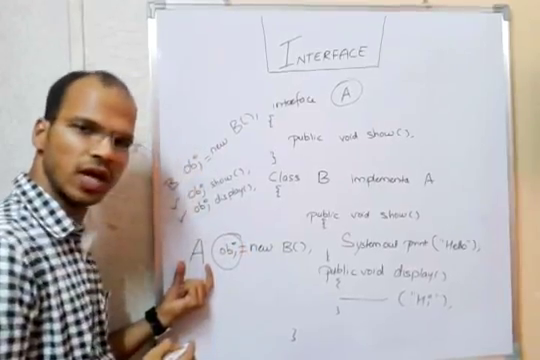 INTERFACE
interface A
{
public void show();
}
Class B implements A
{
public void show()
{
System out print ("Hello");
}
public void display()
{
("Hi");
}
}
B obj = new B();
obj show();
obj display();
A obj = new B();